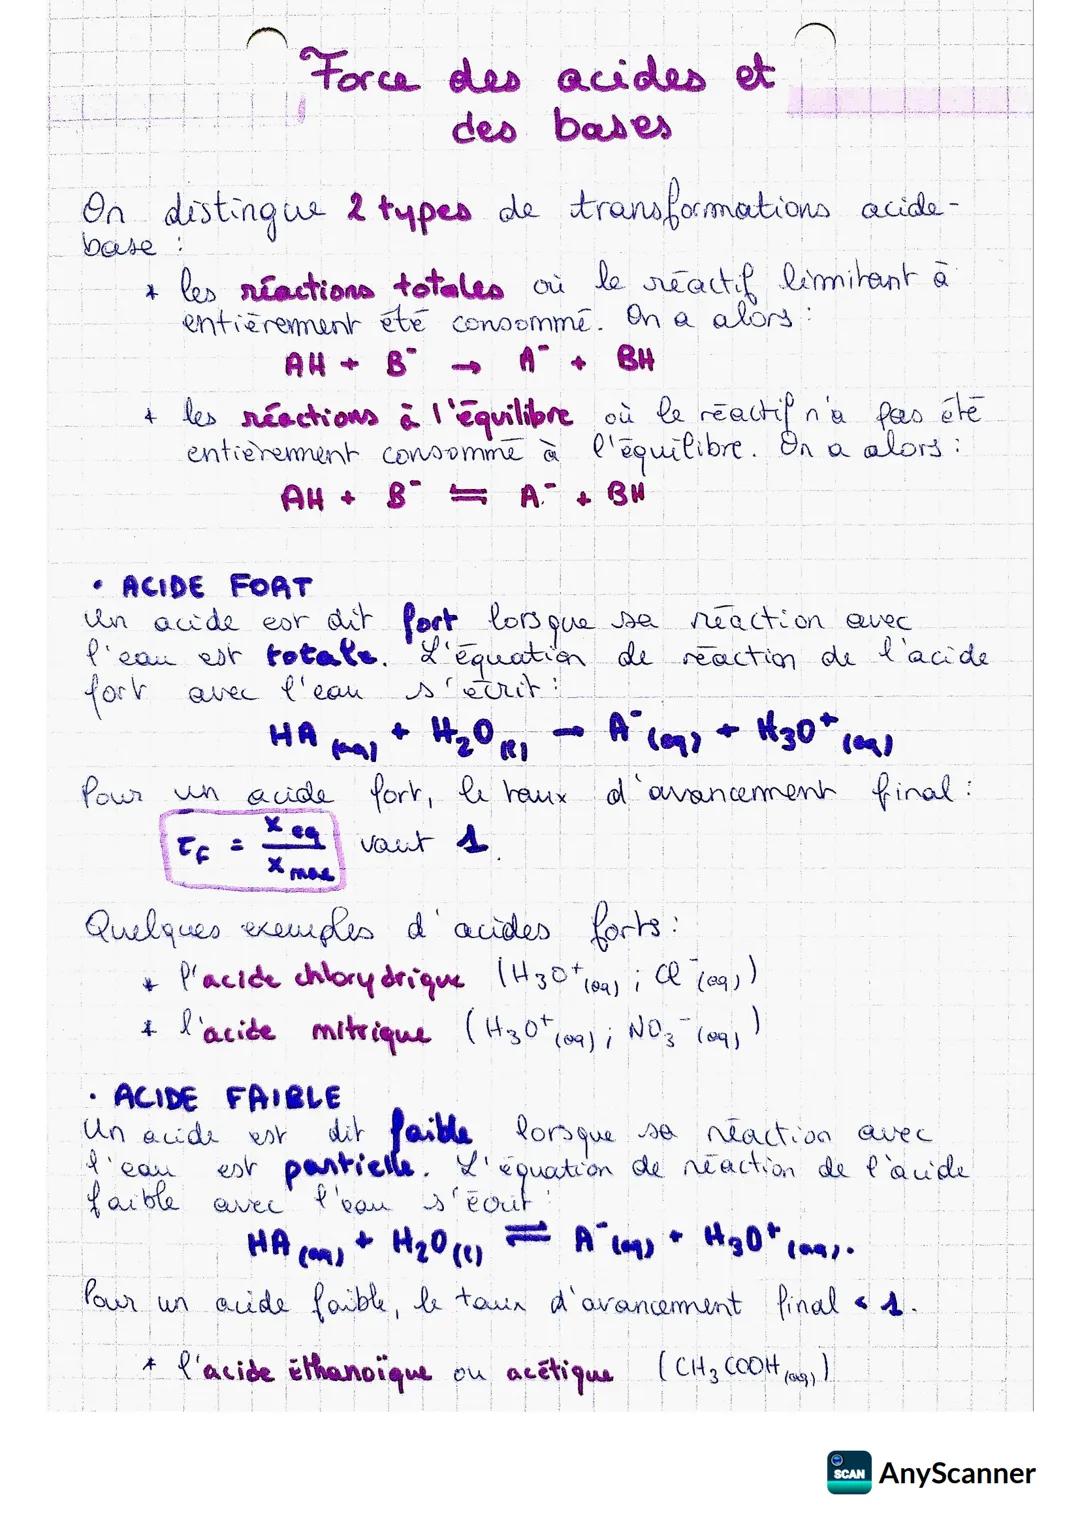 Force des acides et
des bases
On distingue 2 types de transformations acide-
base :
* les réactions totales où le réactif limitant à
entièrement été consommé. On a alors :
AH + B⁻ → A⁻ + BH
* les réactions à l'équilibre où le réactif n'a pas été
entièrement consommé à l'équilibre. On a alors :
AH + B⁻ ⇌ A⁻ + BH
• ACIDE FORT
Un acide est dit fort lorsque sa réaction avec
l'eau est totale. L'équation de réaction de l'acide
fort avec l'eau s'écrit :
HA (aq) + H₂O (l) → A⁻ (aq) + H₃O⁺ (aq)
Pour un acide fort, le taux d'avancement final :
τf = x eq / x max vaut 1.
Quelques exemples d'acides forts :
* l'acide chlorydrique (H₃O⁺(aq) ; Cl⁻(aq))
* l'acide nitrique (H₃O⁺(aq) ; NO₃⁻(aq))
• ACIDE FAIBLE
Un acide est dit faible lorsque sa réaction avec
l'eau est partielle. L'équation de réaction de l'acide
faible avec l'eau s'écrit :
HA (aq) + H₂O (l) ⇌ A⁻ (aq) + H₃O⁺ (aq).
Pour un acide faible, le taux d'avancement final < 1.
* l'acide éthanoïque ou acétique (CH₃COOH (aq))
SCAN AnyScanner